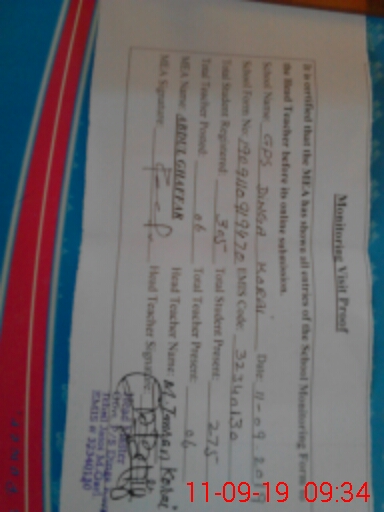 Monitoring Visit Proof
It is certified that the MEA has shown all entries of the School Monitoring Form to
the Head Teacher before its online submission.
School Name: GPS DINGA MORAI Date: 11-09-2019
School Form No: EMIS Code: 32340130
Total Student Registered: 305 Total Student Present: 275
Total Teacher Posted: 06 Total Teacher Present: 06
MEA Name: ABDUL GHAFFAR Head Teacher Name: M. Imran Korai
MEA Signature: Head Teacher Signature:
Head Master
11-09-19 09:34